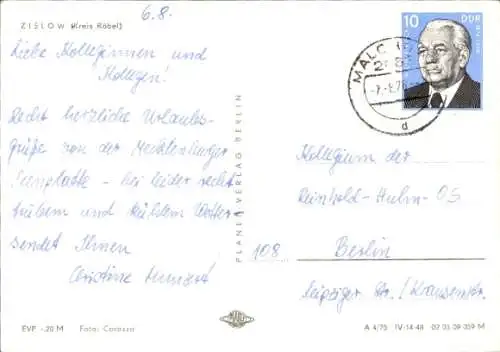 ZISLOW (Kreis Röbel)
6.8.
Liebe Kolleginnen und
Kollegen!
Recht herzliche Urlaubs-
grüße von der Mecklenburger
Seenplatte - bei leider recht
trübem und kühlem Wetter -
sendet Ihnen
Christine
EVP -.20 M Foto:
PLANET VERLAG BERLIN
10 DDR
MALCHOW
d
Kollegium der
Reinhold-Huhn-OS
108 Berlin
Leipziger Str. / Krausenstr.
A 4/75 IV-14-48 02 03 09 359 M